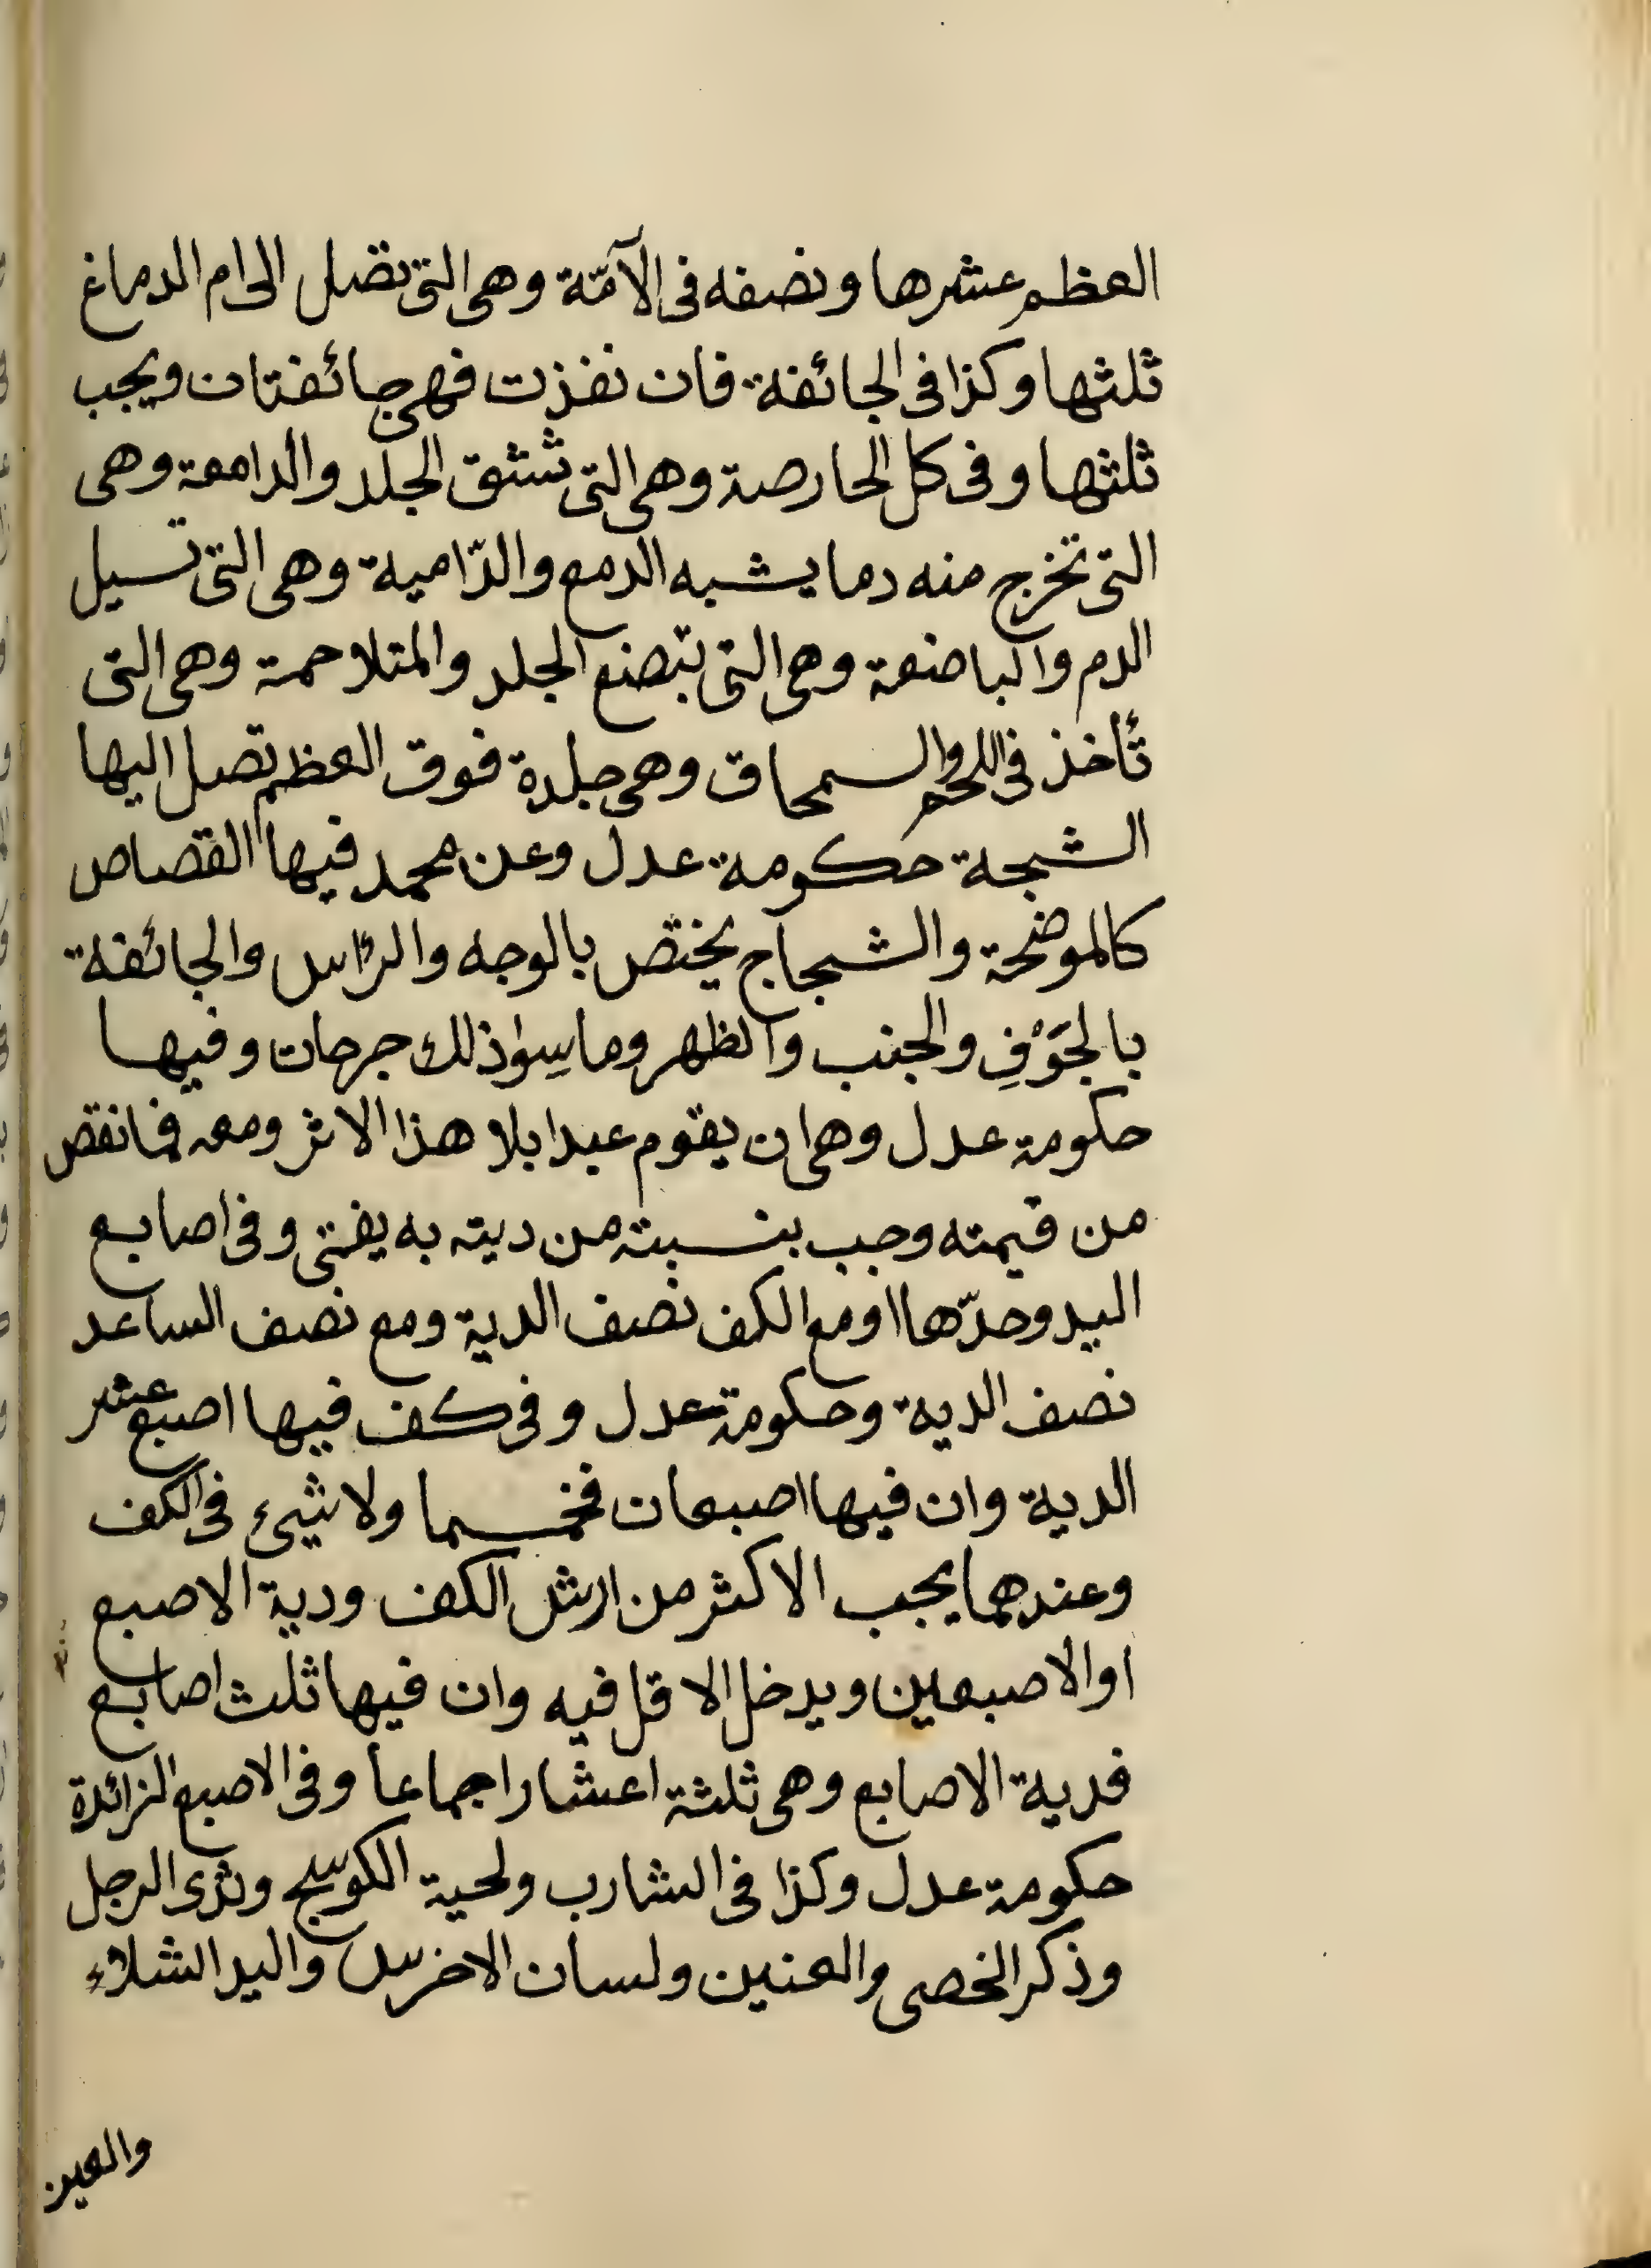 العظم عشرها ونصفه فى الآمّة وهى التى تصل الى ام الدماغ
ثلثها وكذا فى الجائفة فان نفذت فهى جائفتان ويجب
ثلثها وفى كل الحارصة وهى التى تشق الجلد والدامعة وهى
التى تخرج منه دما يشبه الدمع والدّامية وهى التى تسيل
الدم والباضعة وهى التى تبضع الجلد والمتلاحمة وهى التى
تأخذ فى اللحم والسمحاق وهى جلدة فوق العظم تصل اليها
الشجة حكومة عدل وعن محمد فيها القصاص
كالموضحة والشجاج يختص بالوجه والرأس والجائفة
بالجَوْفِ والجنب والظهر وما سِوٰى ذلك جرحات وفيها
حكومة عدل وهى ان يقوم عبدا بلا هذا الاثر ومعه فما نقص
من قيمته وجب بنسبته من ديته به يفتى وفى اصابع
اليد وحدّها او مع الكف نصف الدية ومع نصف الساعد
نصف الدية وحكومة عدل وفى كف فيها اصبع عشر
الدية وان فيها اصبعان فخمسها ولا شيئ فى الكف
وعندهما يجب الاكثر من ارش الكف ودية الاصبع
او الاصبعين ويدخل الاقل فيه وان فيها ثلث اصابع
فدية الاصابع وهى ثلثة اعشار اجماعا وفى الاصبع الزائدة
حكومة عدل وكذا فى الشارب ولحية الكوسج وثدى الرجل
وذكر الخصى والعنين ولسان الاخرس واليد الشلاء
والعين